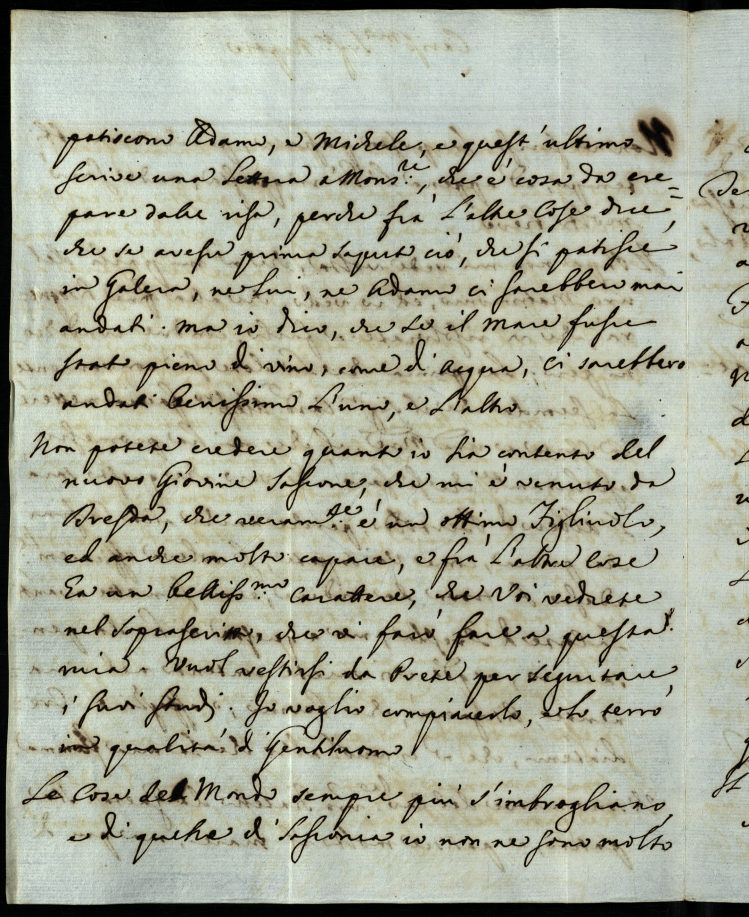 patiscono Adamo, e Michele, e quest'ultimo
scrive una Lettera a Mons.re, che è cosa da cre=
pare dalle risa, perche frà L'altre Cose dice,
che se avesse prima saputo ciò, che si patisce
in Galera, ne Lui, ne Adamo ci sarebbero mai
andati. ma io dico, che se il mare fusse
stato pieno di vino, come di Acqua, ci sarebbero
andati benissimo L'uno, e L'altro
Non potete credere quanto io sia contento del
nuovo Giovine Sassone, che mi è venuto da
Dresda, che veram.te è un ottimo Figliuolo,
ed anche molto capace, e frà L'altre Cose
Ea un belliss.mo Carattere, che Voi vedrete
nel soprascritto, che vi farò fare a questa
mia. Vuol vestirsi da Prete per seguitare
i suoi studj. Io voglio compiacerlo, e lo terrò
in qualità di Gentiluomo
Le Cose del Mondo sempre più s'imbrogliano,
e di quelle di Sassonia io non ne sono molto